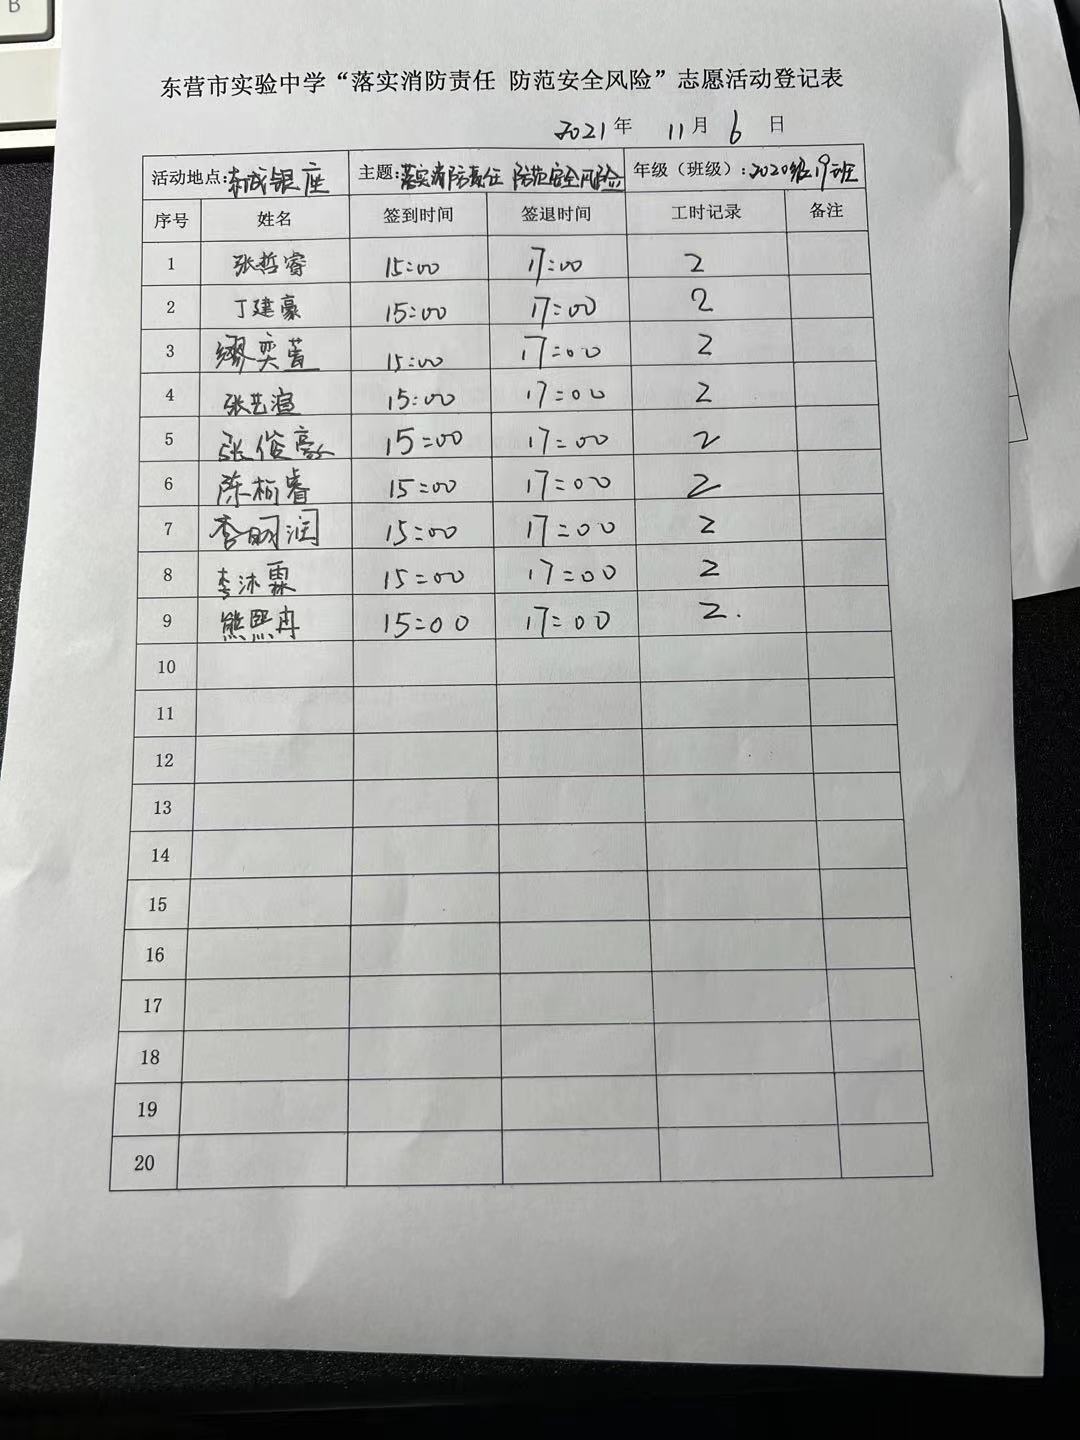 B
东营市实验中学“落实消防责任 防范安全风险”志愿活动登记表
2021年 11月 6 日
活动地点:东城银座 主题:落实消防责任 防范安全风险 年级（班级）:2020级19班
序号 姓名 签到时间 签退时间 工时记录 备注
1 张哲睿 15:00 17:00 2
2 丁建豪 15:00 17:00 2
3 缪奕萱 15:00 17:00 2
4 张艺渲 15:00 17:00 2
5 张俊豪 15:00 17:00 2
6 陈柯睿 15:00 17:00 2
7 李明润 15:00 17:00 2
8 李沐霖 15:00 17:00 2
9 熊熙冉 15:00 17:00 2.
10
11
12
13
14
15
16
17
18
19
20